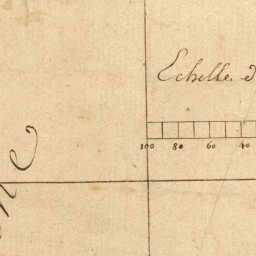 Echelle d
100 80 60 40
ne